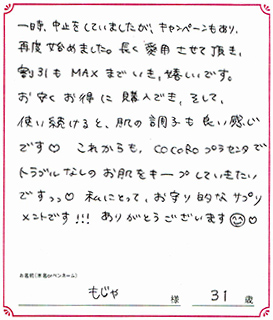 一時、中止をしていましたが、キャンペーンもあり、
再度始めました。長く愛用させて頂き、
割引もMAXまでいき、嬉しいです。
お安くお得に購入でき、そして、
使い続けると、肌の調子も良い感じ
です♡ これからも、COCOROプラセンタで
トラブルなしのお肌をキープしていきたい
ですっっ♡ 私にとって、お守り的なサプリ
メントです!!! ありがとうございます😊♡
お名前(本名orペンネーム)
もじゃ 様 31 歳